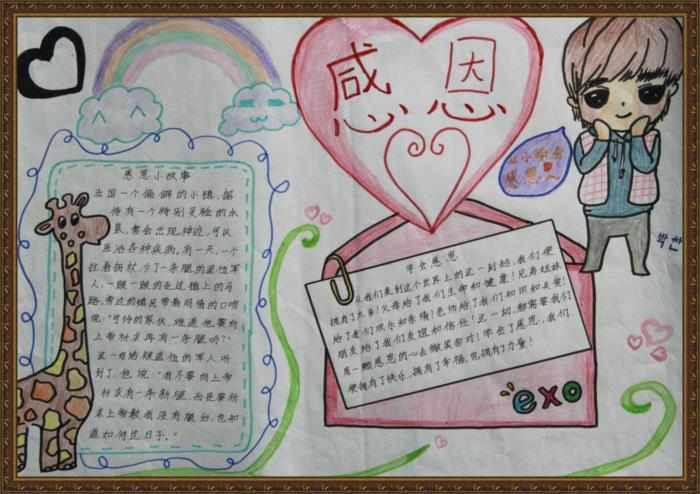 感恩
感恩小故事
法国一个偏僻的小镇，据
传有一个特别灵验的水
泉，常会出现神迹，可以
医治各种疾病。有一天，一个
拄着拐杖，少了一条腿的退伍军
人，一跛一跛的走过镇上的马
路，旁边的镇民带着同情的口吻
说："可怜的家伙，难道他要向
上帝祈求再有一条腿吗？"
这一句话被退伍的军人听
到了，他说："我不要向上帝
祈求有一条新腿，而是要祈
求上帝教我没有腿后，也知
道如何过日子。"
学会感恩
从我们来到这个世界上的这一刻起，我们便
拥有了太多！父母给了我们生命和健康！兄弟姐妹
给了我们欢乐和亲情！老师给了我们知识和友爱！
朋友给了我们友谊和信任！这一切，都需要我们
用一颗感恩的心去面对！学会了感恩，我们
便拥有了快乐，拥有了幸福，也拥有了力量！
exo